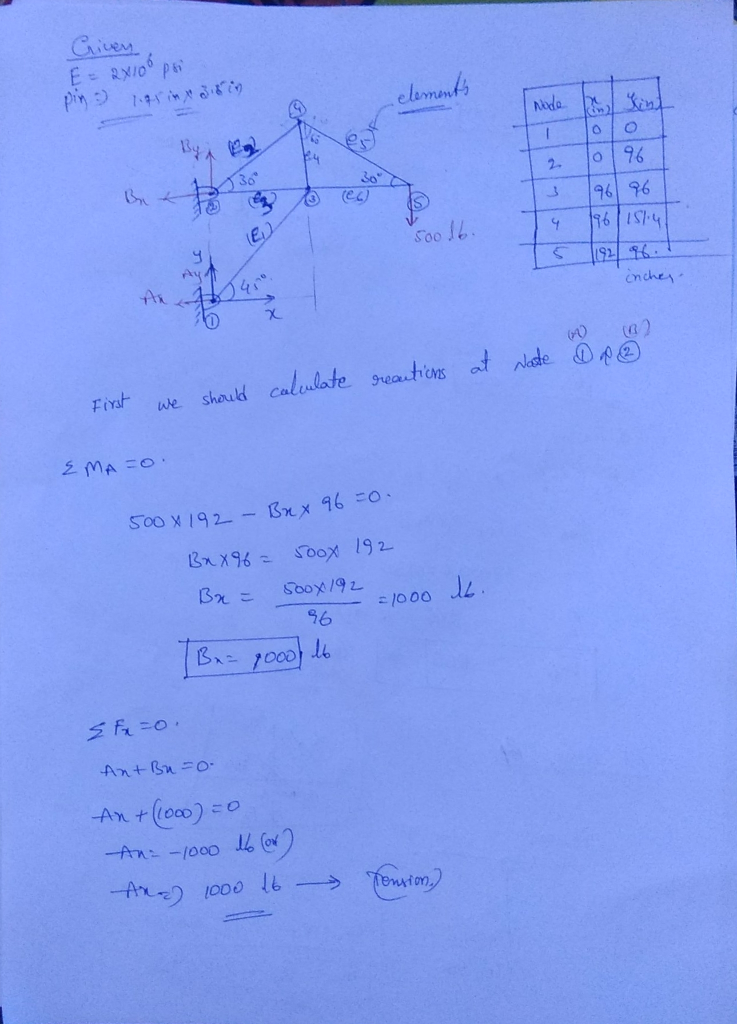 Given
E = 2x10⁶ psi
pin => 1.75 in x 3.5 in
elements
④
By
(e2)
(e5)
e4
30°
30°
Bx
②
(e3)
③
(e6)
⑤
500 lb.
(e1)
y
Ay
Ax
45°
x
①
Node x (in) y (in)
1 0 0
2 0 96
3 96 96
4 96 151.4
5 192 96.
inches.
(A) (B)
First we should calculate reactions at Node ① & ②
Σ MA = 0.
500 x 192 – Bx x 96 = 0.
Bx x 96 = 500 x 192
Bx = 500x192 / 96 = 1000 lb.
Bx = 1000 lb
Σ Fx = 0.
Ax + Bx = 0.
Ax + (1000) = 0
Ax = -1000 lb (or)
Ax => 1000 lb → (Tension)